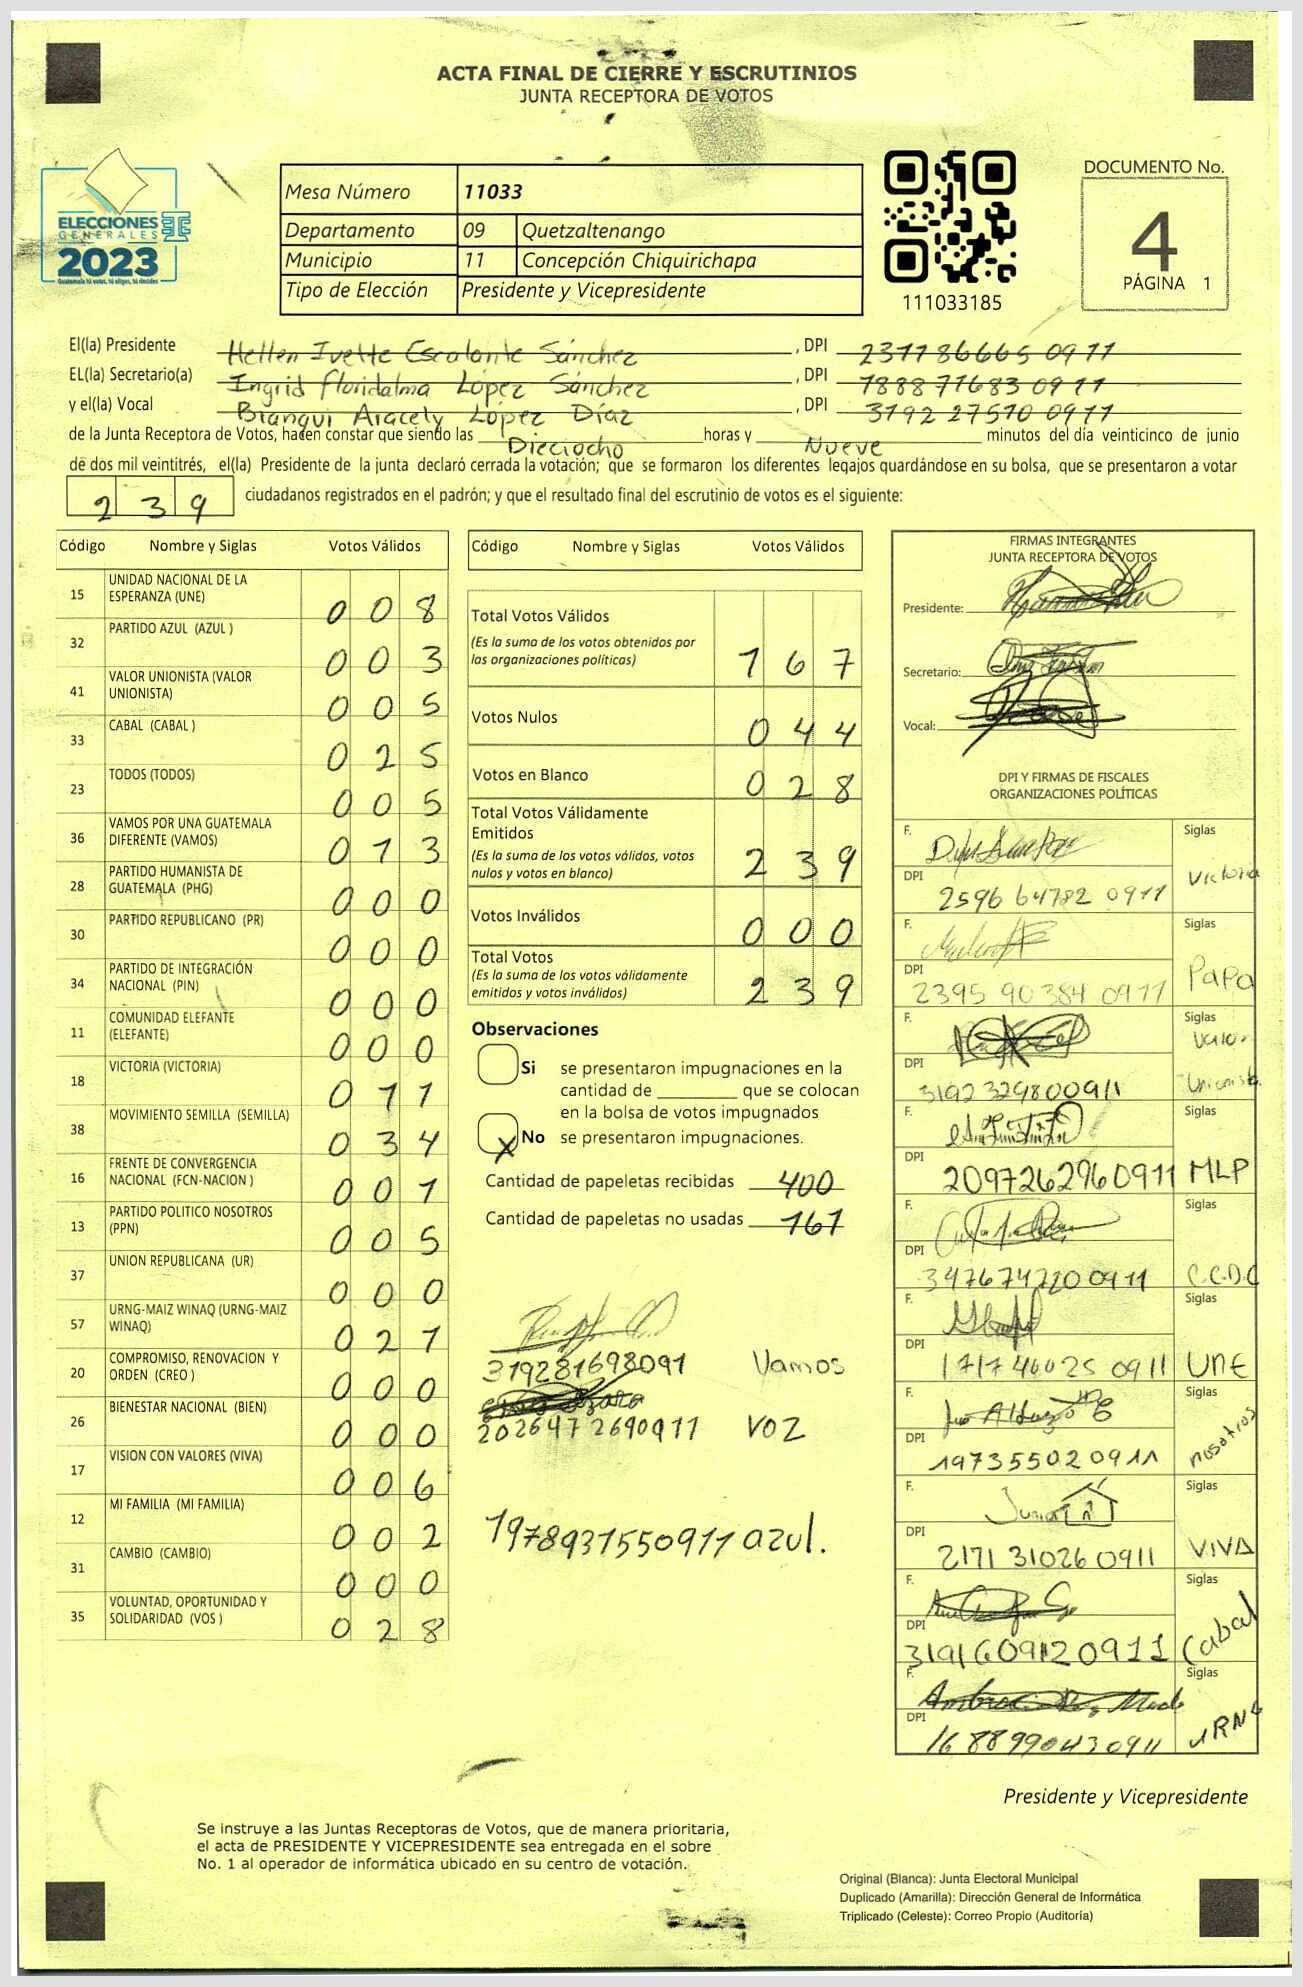 ACTA FINAL DE CIERRE Y ESCRUTINIOS
JUNTA RECEPTORA DE VOTOS
ELECCIONES
GENERALES
2023
Guatemala tú votas, tú eliges, tú decides
Mesa Número 11033
Departamento 09 Quetzaltenango
Municipio 11 Concepción Chiquirichapa
Tipo de Elección Presidente y Vicepresidente
111033185
DOCUMENTO No.
4
PÁGINA 1
El(la) Presidente Hellen Ivette Escalante Sánchez, DPI 237786665 0911
EL(la) Secretario(a) Ingrid Floridalma López Sánchez, DPI 7888 77683 0911
y el(la) Vocal Bianqui Aracely López Díaz, DPI 3192 27510 0911
de la Junta Receptora de Votos, hacen constar que siendo las Dieciocho horas y Nueve minutos del día veinticinco de junio
de dos mil veintitrés, el(la) Presidente de la junta declaró cerrada la votación; que se formaron los diferentes legajos quardándose en su bolsa, que se presentaron a votar
239 ciudadanos registrados en el padrón; y que el resultado final del escrutinio de votos es el siguiente:
Código Nombre y Siglas Votos Válidos
15 UNIDAD NACIONAL DE LA ESPERANZA (UNE) 008
32 PARTIDO AZUL (AZUL ) 003
41 VALOR UNIONISTA (VALOR UNIONISTA) 005
33 CABAL (CABAL ) 025
23 TODOS (TODOS) 005
36 VAMOS POR UNA GUATEMALA DIFERENTE (VAMOS) 013
28 PARTIDO HUMANISTA DE GUATEMALA (PHG) 000
30 PARTIDO REPUBLICANO (PR) 000
34 PARTIDO DE INTEGRACIÓN NACIONAL (PIN) 000
11 COMUNIDAD ELEFANTE (ELEFANTE) 000
18 VICTORIA (VICTORIA) 011
38 MOVIMIENTO SEMILLA (SEMILLA) 034
16 FRENTE DE CONVERGENCIA NACIONAL (FCN-NACION ) 001
13 PARTIDO POLITICO NOSOTROS (PPN) 005
37 UNION REPUBLICANA (UR) 000
57 URNG-MAIZ WINAQ (URNG-MAIZ WINAQ) 021
20 COMPROMISO, RENOVACION Y ORDEN (CREO ) 000
26 BIENESTAR NACIONAL (BIEN) 000
17 VISION CON VALORES (VIVA) 006
12 MI FAMILIA (MI FAMILIA) 002
31 CAMBIO (CAMBIO) 000
35 VOLUNTAD, OPORTUNIDAD Y SOLIDARIDAD (VOS ) 028
Código Nombre y Siglas Votos Válidos
Total Votos Válidos
(Es la suma de los votos obtenidos por
las organizaciones políticas) 167
Votos Nulos 044
Votos en Blanco 028
Total Votos Válidamente
Emitidos
(Es la suma de los votos válidos, votos
nulos y votos en blanco) 239
Votos Inválidos 000
Total Votos
(Es la suma de los votos válidamente
emitidos y votos inválidos) 239
Observaciones
Si se presentaron impugnaciones en la
cantidad de ________ que se colocan
en la bolsa de votos impugnados
X No se presentaron impugnaciones.
Cantidad de papeletas recibidas 400
Cantidad de papeletas no usadas 161
319281698091 Vamos
202647 2690911 VOZ
1978931550911 azul.
FIRMAS INTEGRANTES
JUNTA RECEPTORA DE VOTOS
Presidente:
Secretario:
Vocal:
DPI Y FIRMAS DE FISCALES
ORGANIZACIONES POLÍTICAS
F. Siglas
DPI 2596 64782 0911 Victoria
F. Siglas
DPI 2395 90384 0911 Papa
F. Siglas
DPI 3192329800911 Valor Unionista
F. Siglas
DPI 2097262960911 MLP
F. Siglas
DPI 3476747200911 C.C.D.C
F. Siglas
DPI 1717 46025 0911 UNE
F. Siglas
DPI 197355020911 nosotros
F. Junior Siglas
DPI 2171 31026 0911 VIVA
F. Siglas
DPI 3191609120911 Cabal
F. Siglas
DPI 16 88990430911 URNG
Presidente y Vicepresidente
Se instruye a las Juntas Receptoras de Votos, que de manera prioritaria,
el acta de PRESIDENTE Y VICEPRESIDENTE sea entregada en el sobre
No. 1 al operador de informática ubicado en su centro de votación.
Original (Blanca): Junta Electoral Municipal
Duplicado (Amarilla): Dirección General de Informática
Triplicado (Celeste): Correo Propio (Auditoría)